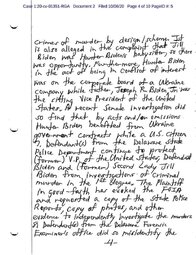 Case 1:20-cv-01351-RGA Document 2 Filed 10/06/20 Page 4 of 10 PageID #: 5
crimes of murder by design/scheme. It
is also alleged in the complaint that Jill
Biden was Hunter Biden's babysitter, so there
was opportunity. Furthermore, Hunter Biden
in the act of being in conflict of interest
was on the corporate board of a Ukraine
company while father, Joseph R. Biden, Jr. was
the sitting Vice President of the United
States. A recent Senate Investigation did
so find that by acts and/or omissions
Hunter Biden benefited from Ukraine
government contracts while a U.S. citizen
Defendant(s) from the Delaware State
Police Department continue to protect
(former) V.P. of the United States, Defendant
Biden and (former) Second Lady Jill
Biden from investigations of criminal
murder in the 1st Degree. The Plaintiff
in Good-faith has evoked the FOIA
and requested a copy of the State Police
Reports, copy of photos, and other
evidence to independently investigate the murders
Defendant(s) from the Delaware Forensic
Examiner's office did so misidentify the
-4-